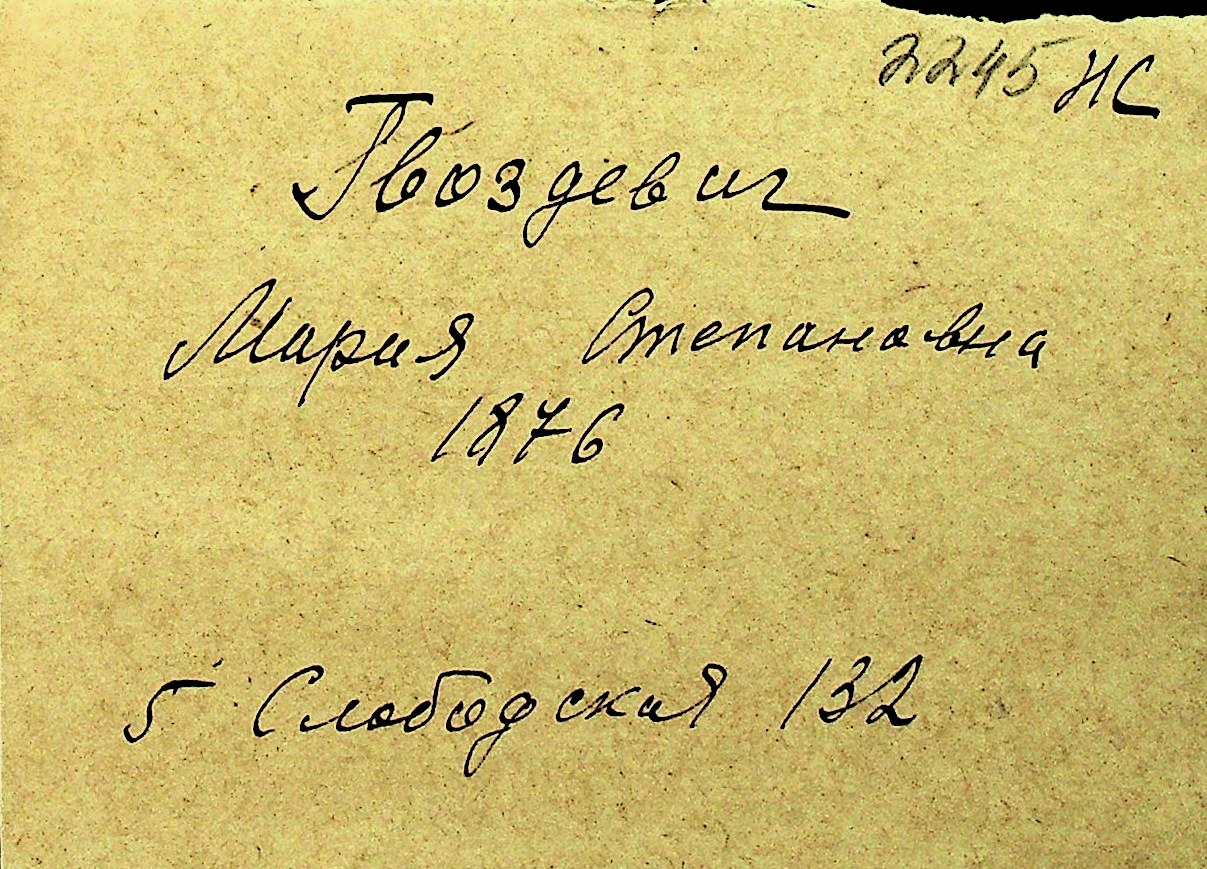 2245 НС
Гвоздевич
Мария Степановна
1876
5 Слободская 132